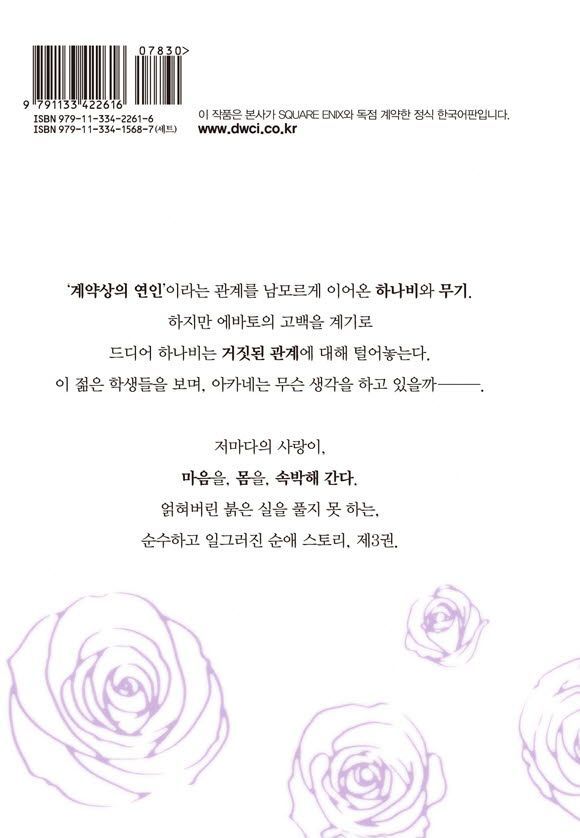 07830>
9 791133 422616
ISBN 979-11-334-2261-6
ISBN 979-11-334-1568-7(세트)
이 작품은 본사가 SQUARE ENIX와 독점 계약한 정식 한국어판입니다.
www.dwci.co.kr
‘계약상의 연인’이라는 관계를 남모르게 이어온 하나비와 무기.
하지만 에바토의 고백을 계기로
드디어 하나비는 거짓된 관계에 대해 털어놓는다.
이 젊은 학생들을 보며, 아카네는 무슨 생각을 하고 있을까———.
저마다의 사랑이,
마음을, 몸을, 속박해 간다.
얽혀버린 붉은 실을 풀지 못 하는,
순수하고 일그러진 순애 스토리, 제3권.